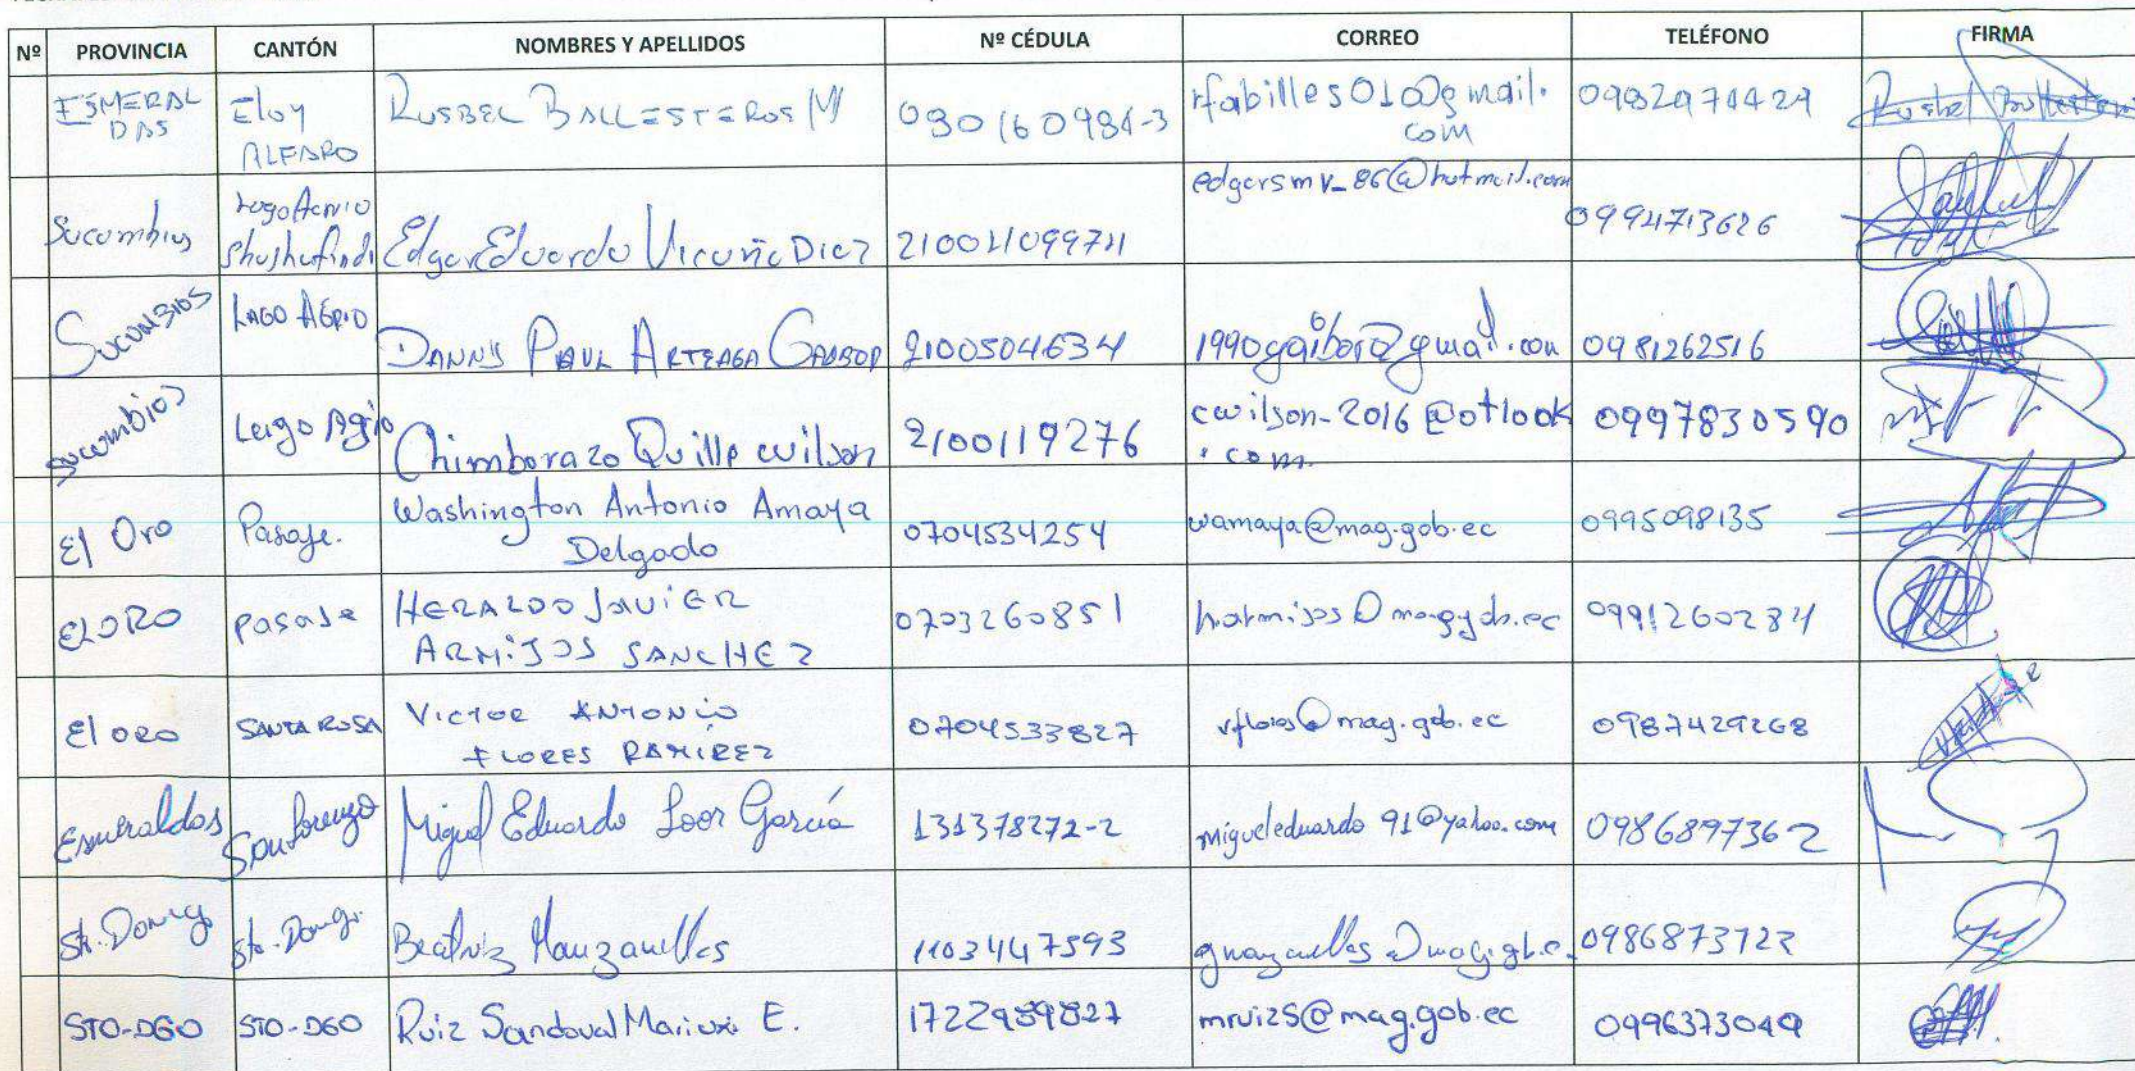 Nº PROVINCIA CANTÓN NOMBRES Y APELLIDOS Nº CÉDULA CORREO TELÉFONO FIRMA
ESMERAL
DAS
Eloy
ALFARO
RUSBEL BALLESTEROS M
080160984-3
rfabilles010@gmail.
com
0982974429
Rusbel Ballesteros
Sucumbios
Lago Agrio
Shushufindi
Edgar Eduardo Vicuña Diaz
2100410997 4
edgarsmv_86@hotmail.com
0994713626
SUCUMBIOS
LAGO AGRIO
DANNY PAUL ARTEAGA GAIBOR
2100504634
1990gaibor@gmail.com
0981262516
Sucumbios
Lago Agrio
Chimborazo Quille wilson
2100119276
cwilson-2016@otlook
.com
0997830590
El Oro
Pasaje.
Washington Antonio Amaya
Delgado
0704534254
wamaya@mag.gob.ec
0995098135
EL ORO
PASAJE
HERALDO JAVIER
ARMIJOS SANCHEZ
0703260851
harmijos@mag.gob.ec
0991260284
El oro
SANTA ROSA
VICTOR ANTONIO
FLORES RAMIREZ
0704533827
vflores@mag.gob.ec
0987429268
Esmeraldas
San Lorenzo
Miguel Eduardo Loor García
131378272-2
migueleduardo91@yahoo.com
0986897362
Sto. Domingo
Sto. Domgo.
Beatriz Manzanillas
1103447593
0986873722
STO-DGO
STO-DGO
Ruiz Sandoval Mariuxi E.
1722959827
mruizS@mag.gob.ec
0996373049